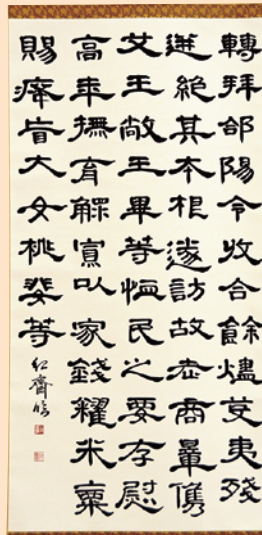 轉拜郃陽令收合餘燼芟夷殘
迸絕其本根遂訪故老商量儁
艾王敞王畢等恤民之要存慰
高年撫育鰥寡以家錢糴米粟
賜癃盲大女桃婓等